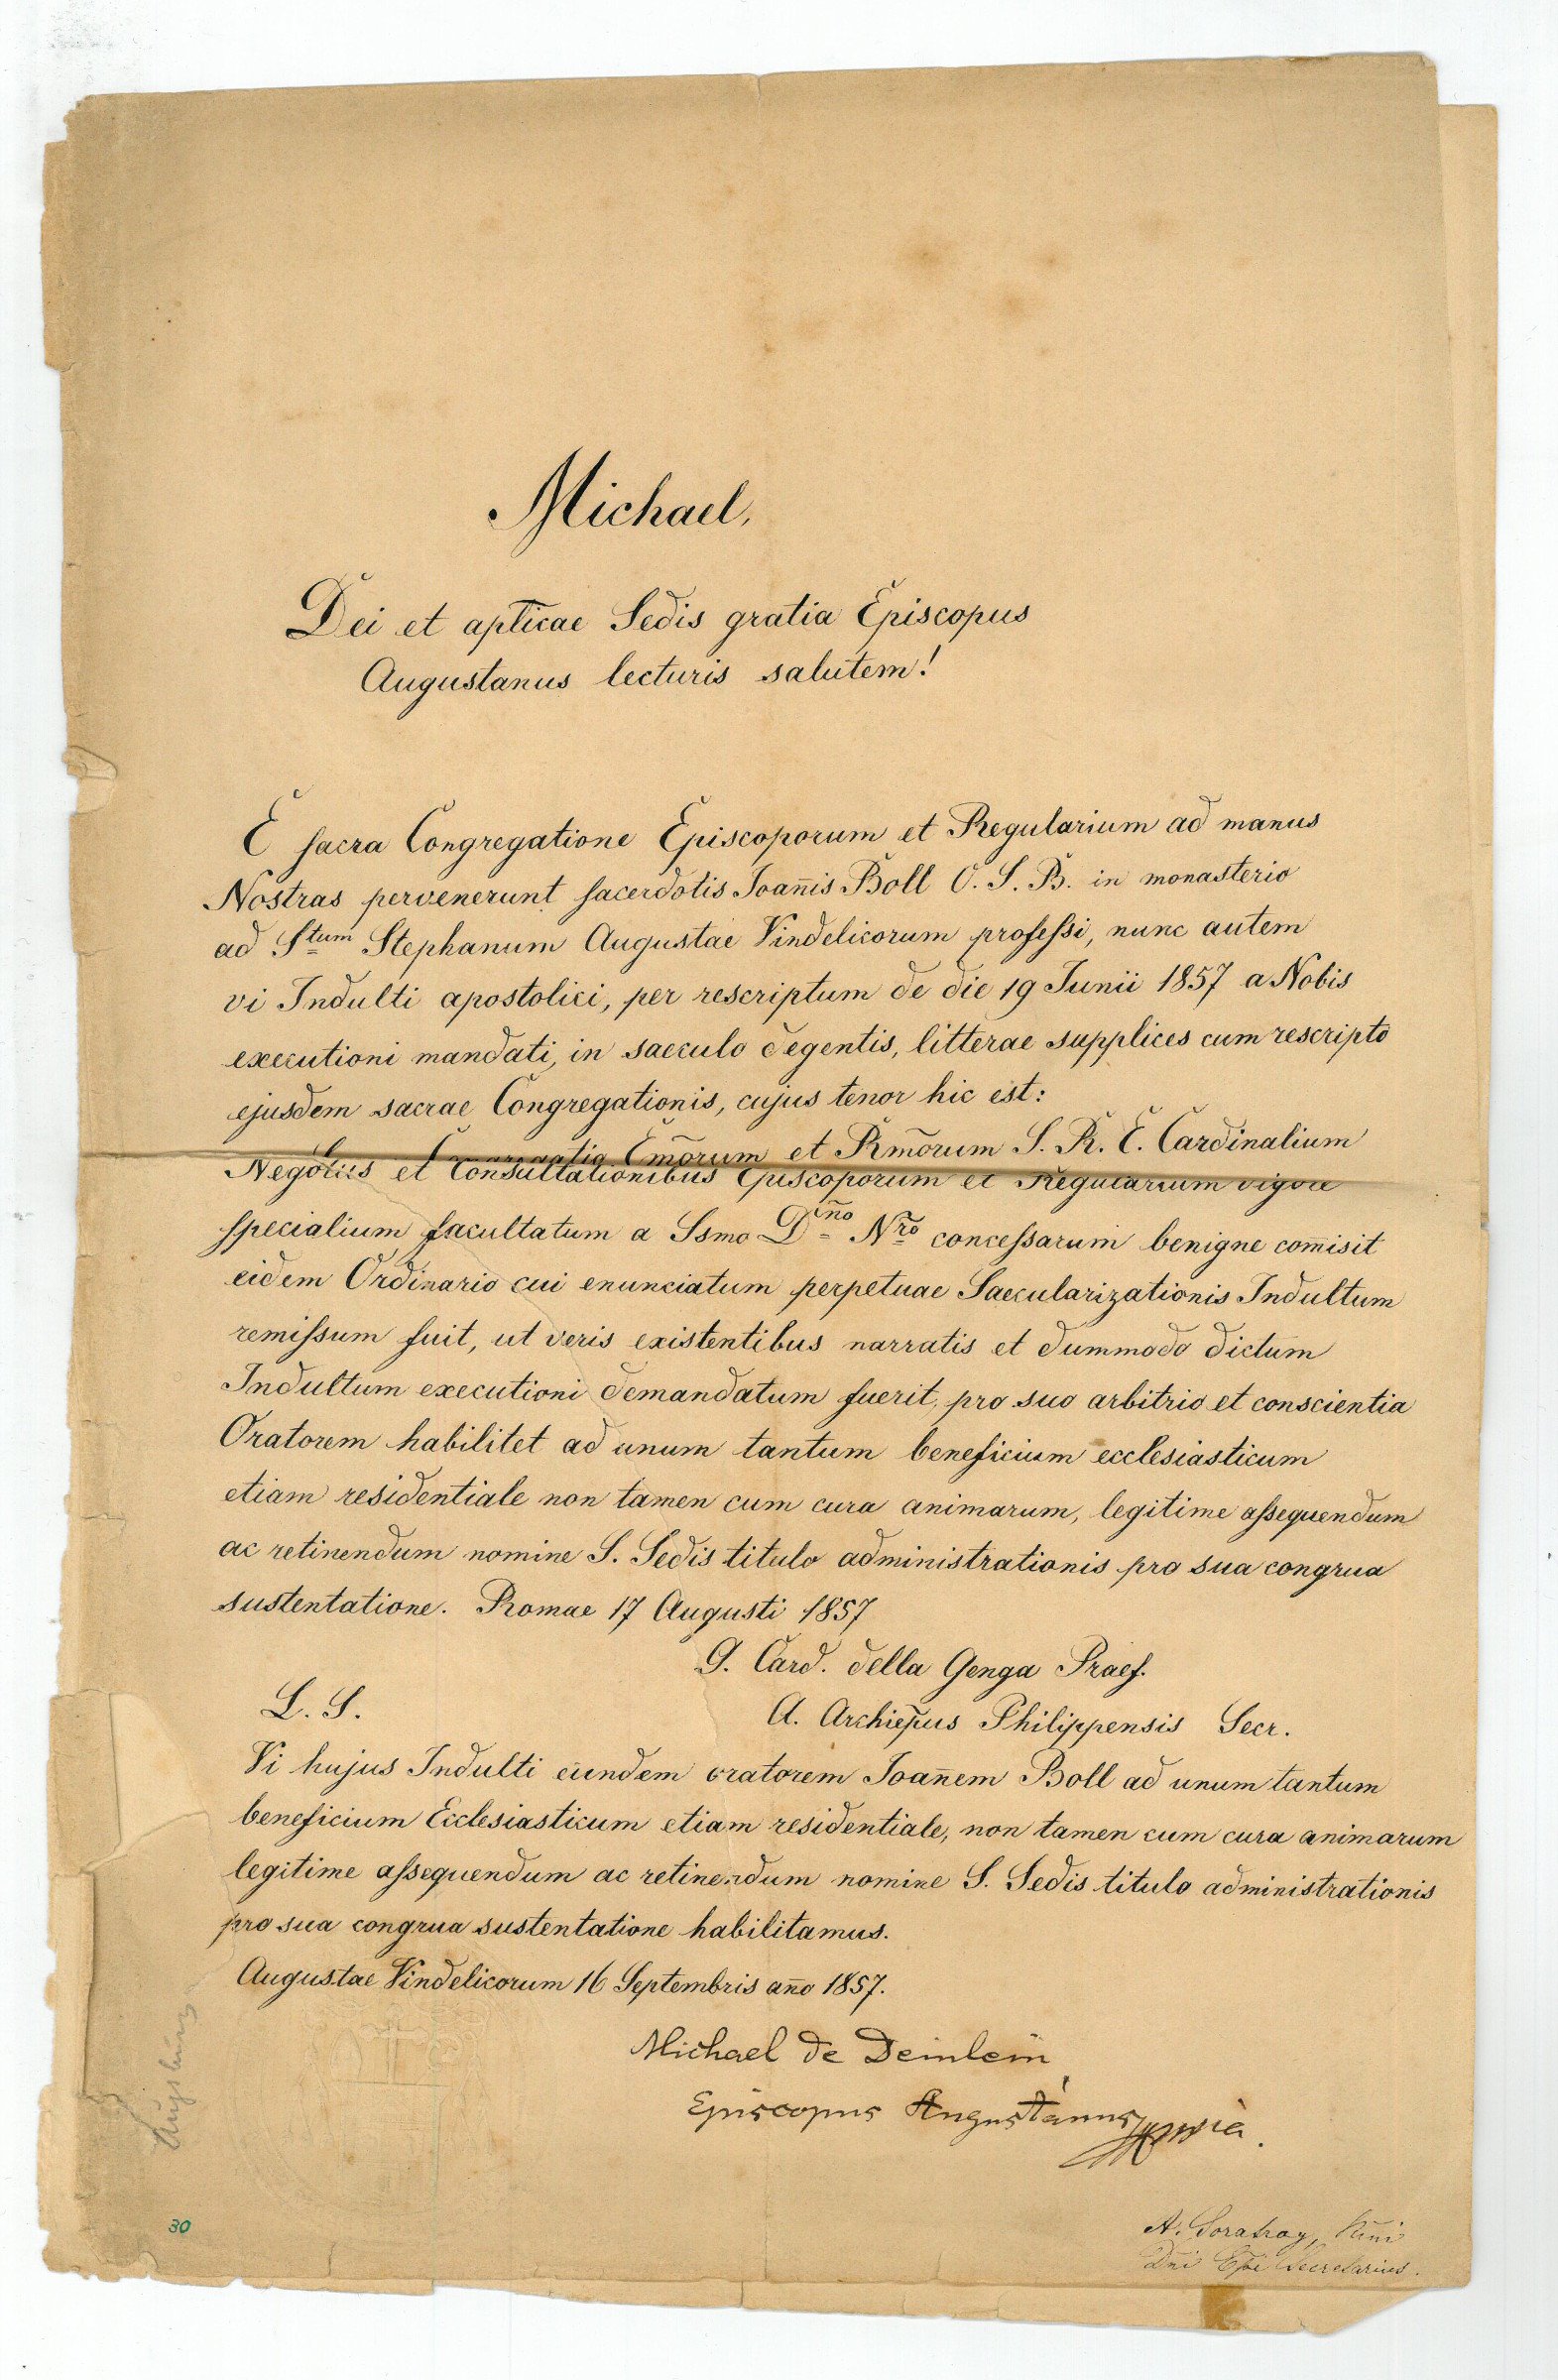 Michael,
Dei et aplicae Sedis gratia Episcopus
Augustanus lecturis salutem!
E sacra Congregatione Episcoporum et Regularium ad manus
Nostras pervenerunt sacerdotis Joan̄is Boll O. S. B. in monasterio
ad Stum Stephanum Augustae Vindelicorum professi, nunc autem
vi Indulti apostolici, per rescriptum de die 19 Junii 1857 a Nobis
executioni mandati, in saeculo degentis, litterae supplices cum rescripto
ejusdem sacrae Congregationis, cujus tenor hic est:
Em̄orum et Rm̄orum S. R. E. Cardinalium
Negotiis et Consultationibus Episcoporum et Regularium vigore
specialium facultatum a Ssmo Dn̄o Nr̄o concessarum benigne com̄isit
eidem Ordinario cui enunciatum perpetuae Saecularizationis Indultum
remissum fuit, ut veris existentibus narratis et dummodo dictum
Indultum executioni demandatum fuerit, pro suo arbitrio et conscientia
Oratorem habilitet ad unum tantum beneficium ecclesiasticum
etiam residentiale non tamen cum cura animarum, legitime assequendum
ac retinendum nomine S. Sedis titulo administrationis pro sua congrua
sustentatione. Romae 17 Augusti 1857
G. Card. della Genga Praef.
L. S.
A. Archiep̄us Philippensis Secr.
Vi hujus Indulti eundem oratorem Joan̄em Boll ad unum tantum
beneficium Ecclesiasticum etiam residentiale, non tamen cum cura animarum
legitime assequendum ac retinendum nomine S. Sedis titulo administrationis
pro sua congrua sustentatione habilitamus.
Augustae Vindelicorum 16 Septembris an̄o 1857.
Michael de Deinlein
Episcopus Augustanus
Augsburg
30
A.
Dn̄i Ep̄i Secretarius.